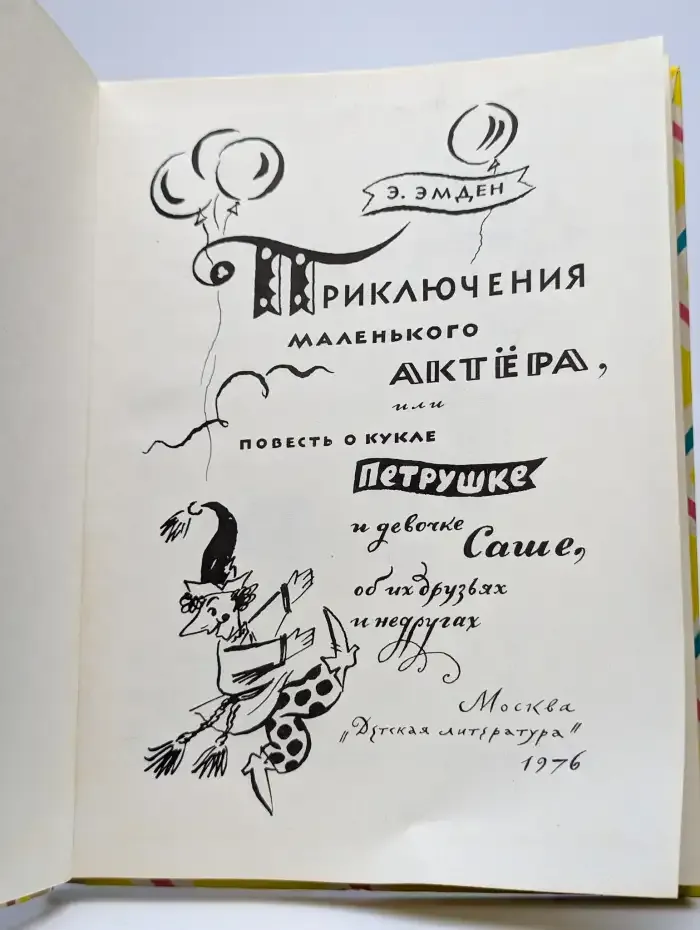 Э. ЭМДЕН
ПРИКЛЮЧЕНИЯ
МАЛЕНЬКОГО
АКТЁРА,
или
ПОВЕСТЬ О КУКЛЕ
ПЕТРУШКЕ
и девочке
Саше,
об их друзьях
и недругах
Москва
„Детская литература"
1976